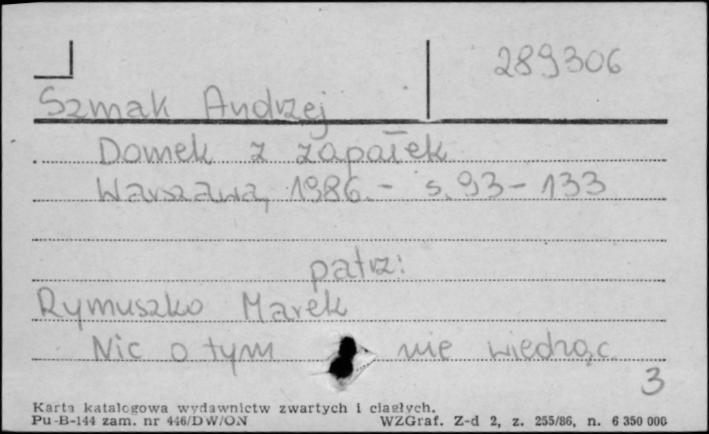 289306
Szmak Andrzej
Domek z zapałek
Warszawa, 1986. - s. 93 - 133
patrz:
Rymuszko Marek
Nic o tym nie wiedząc.
3
Karta katalogowa wydawnictw zwartych i ciągłych.
Pu-B-144 zam. nr 446/DW/ON WZGraf. Z-d 2, z. 255/86, n. 6 350 000